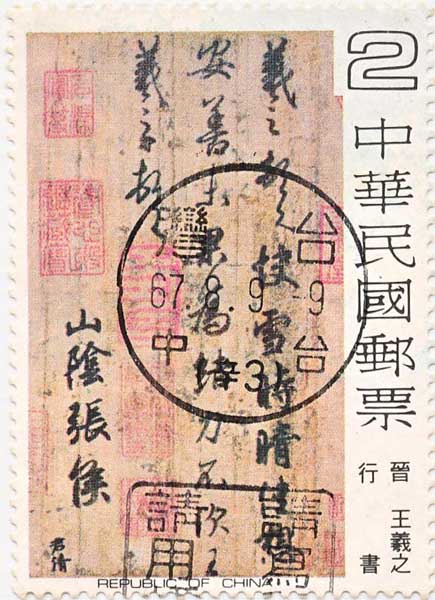 2
中華民國郵票
晉 王羲之
行書
羲之頓首快雪時晴佳想
安善未果為結力不次王
羲之頓首
山陰張侯
君倩
台灣
67.8.9.-9
台中
3
請寫
請用
REPUBLIC OF CHINA